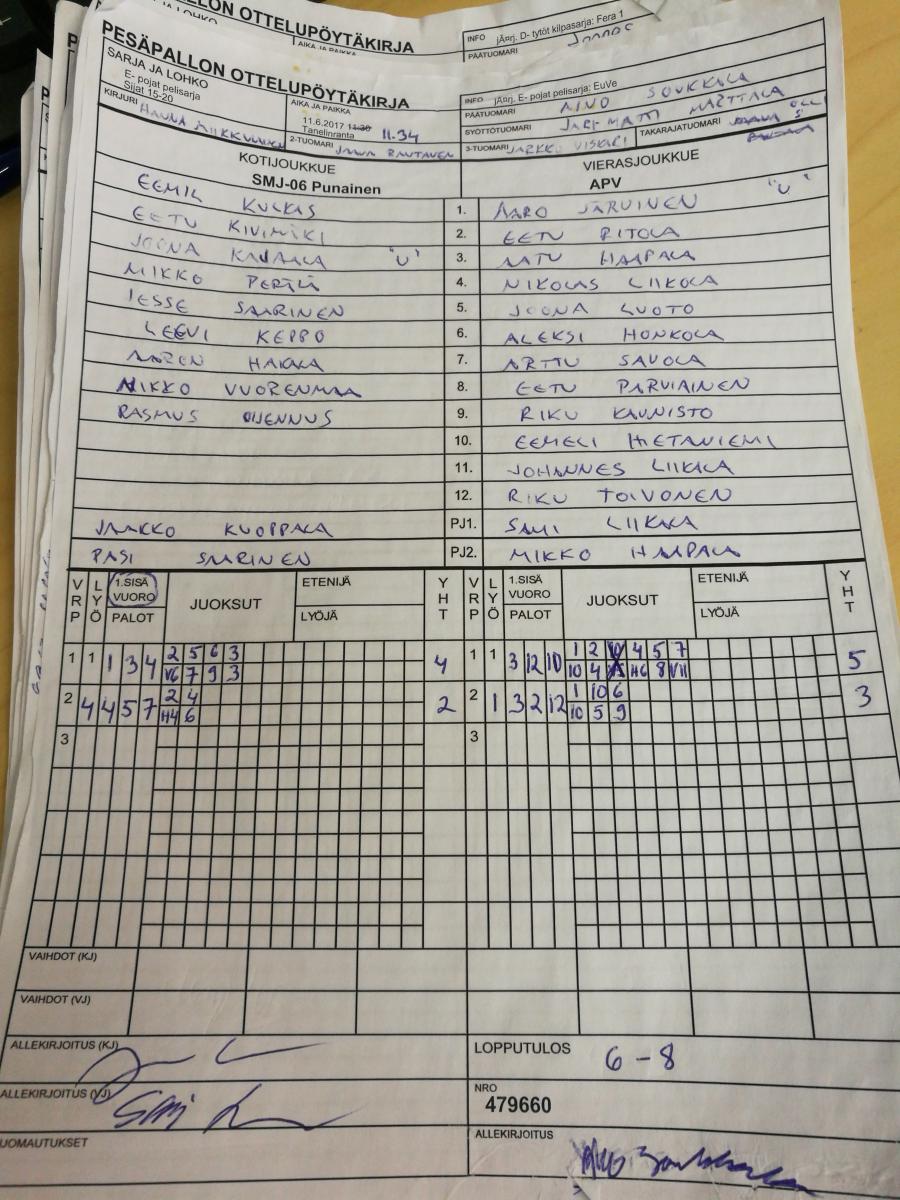 PESÄPALLON OTTELUPÖYTÄKIRJA
INFO jÄ¤rj. D- tytöt kilpasarja: Fera 1
PÄÄTUOMARI
AIKA JA PAIKKA
PESÄPALLON OTTELUPÖYTÄKIRJA
SARJA JA LOHKO
E- pojat pelisarja
Sijat 15-20
AIKA JA PAIKKA
11.6.2017 11:30 11.34
Tanelinranta
INFO jÄ¤rj. E- pojat pelisarja: EuVe
PÄÄTUOMARI AINO SOUKKALA
SYÖTTÖTUOMARI JARI-MATTI MARTTALA
TAKARAJATUOMARI
KIRJURI HANNA
2-TUOMARI JAANA RAUTANEN
3-TUOMARI JARKKO VISKARI
KOTIJOUKKUE VIERASJOUKKUE
SMJ-06 Punainen APV
EEMIL KULKAS 1. AARO JÄRVINEN "U"
EETU KIVIMÄKI 2. EETU RITOLA
JOONA "U" 3. AATU HAAPALA
MIKKO PERTTI 4. NIKOLAS LIIKOLA
JESSE SAARINEN 5. JOONA LUOTO
LEEVI KEPPO 6. ALEKSI HONKOLA
AAREN HAKALA 7. ARTTU SAVOLA
MIKKO VUORENMAA 8. EETU PARVIAINEN
RASMUS 9. RIKU KAUNISTO
10. EEMELI HIETANIEMI
11. JOHANNES LIIKALA
12. RIKU TOIVONEN
JAAKKO KUOPPALA PJ1. SAMI LIIKALA
PASI SAARINEN PJ2. MIKKO HAAPALA
VRP LYÖ 1.SISÄ VUORO PALOT JUOKSUT ETENIJÄ LYÖJÄ YHT VRP LYÖ 1.SISÄ VUORO PALOT JUOKSUT ETENIJÄ LYÖJÄ YHT
1 1 1 3 4 2 5 6 3 4 1 1 3 12 10 1 2 4 5 7 5
V6 7 9 3 10 4 H6 8 V11
2 4 4 5 7 2 4 2 2 1 3 2 12 1 10 6 3
H4 6 10 5 9
3 3
VAIHDOT (KJ)
VAIHDOT (VJ)
ALLEKIRJOITUS (KJ)
LOPPUTULOS 6 - 8
ALLEKIRJOITUS (VJ)
NRO
479660
UOMAUTUKSET
ALLEKIRJOITUS